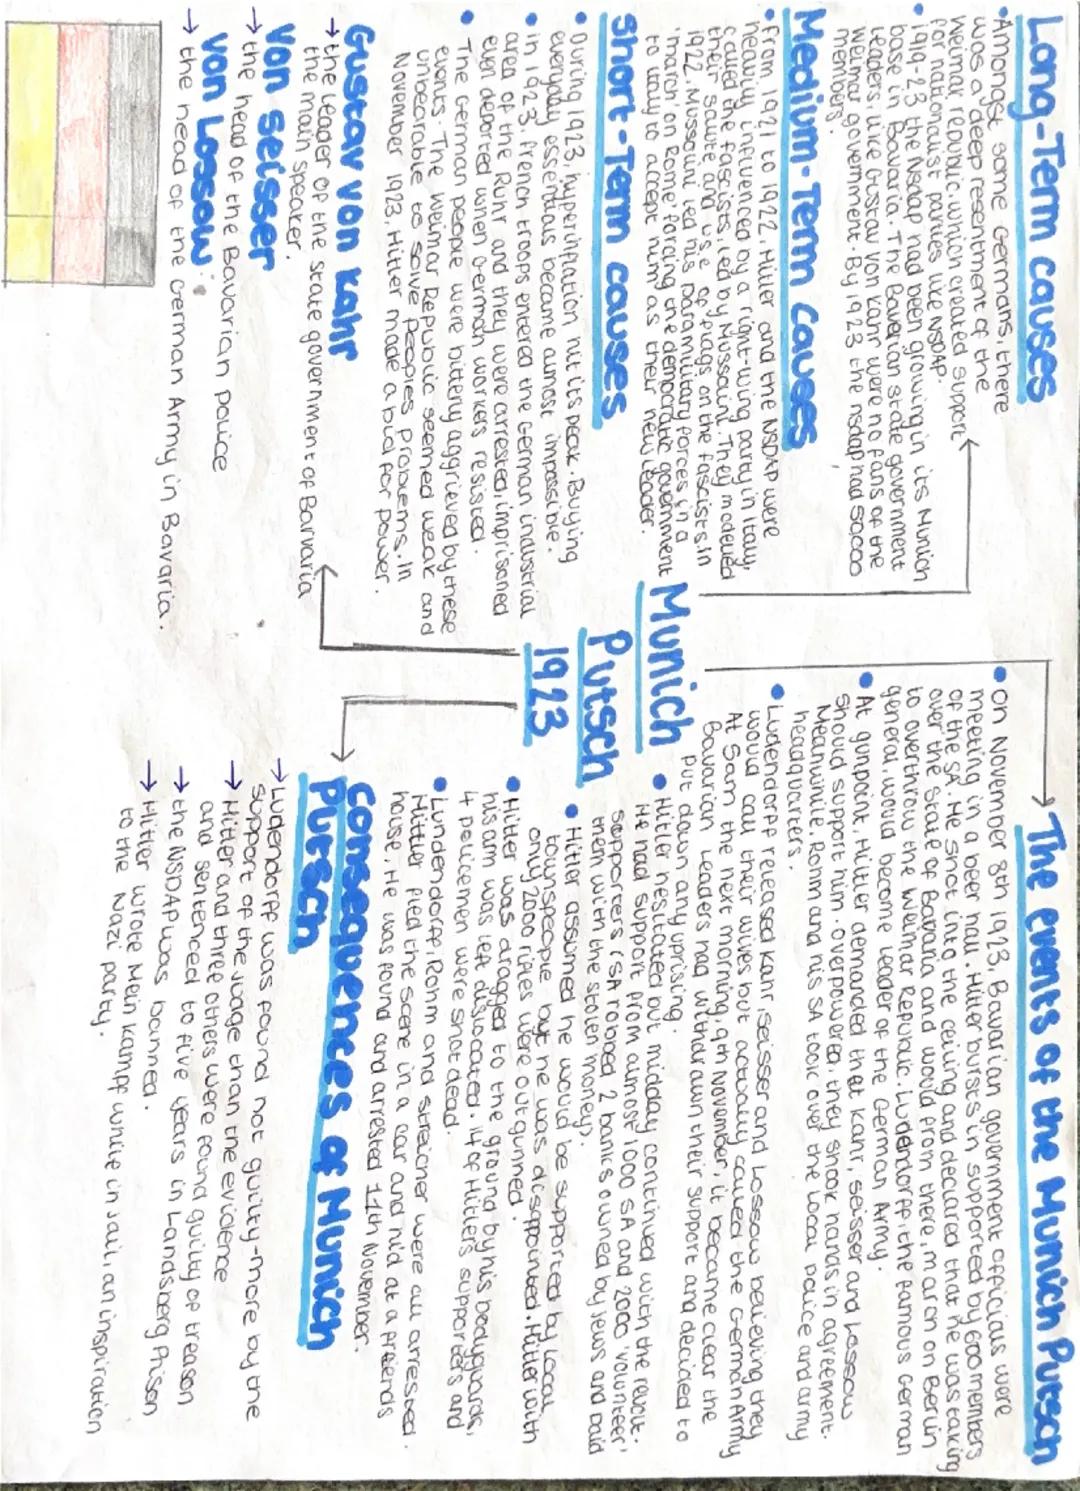 Long-Term causes
• Amongst some Germans, there
was a deep resentment of the
Weimar republic, which created support
for nationalist parties like NSDAP.
• 1919-23 the Nsdap had been growing in its Munich
base in Bavaria. The Bavarian state government
leaders, like Gustav von Kahr were no fans of the
Weimar government. By 1923 the nsdap had 50,000
members.
Medium-Term Causes
• From 1921 to 1922, Hitler and the NSDAP were
heavily influenced by a right-wing party in Italy,
called the fascists, led by Mussolini. They modelled
their salute and use of flags on the fascists. In
1922, Mussolini led his paramilitary forces in a
'march' on Rome' forcing the democratic government
to Italy to accept him as their new leader.
Short-Term causes
• During 1923, hyperinflation hit its peak. Buying
everyday essentials became almost impossible.
• in 1923, French troops entered the German industrial
area of the Ruhr and they were arrested, imprisoned
even deported when German workers resisted.
• The German people were bitterly aggrieved by these
events. The Weimar Republic seemed weak and
unbearable to solve peoples problems. In
November 1923, Hitler made a bid for power.
Gustav von Kahr
→ the leader of the state government of Barvaria
the main speaker.
Von Seisser
→ the head of the Bavarian police
Von Lossow
→ the head of the German Army in Bavaria.
Munich
Putsch
1923
The events of the Munich Putsch
• On November 8th 1923, Bavarian government officials were
meeting in a beer hall. Hitler bursts in supported by 600 members
of the SA. He shot into the ceiling and declared that he was taking
over the State of Bavaria and would from there, march on Berlin
to overthrow the Weimar Republic. Ludendorff, the famous German
general, would become leader of the German Army.
• At gunpoint, Hitler demanded that Kahr, seisser and Lossow
should support him. Overpowered, they shook hands in agreement.
Meanwhile, Rohm and his SA took over the local police and army
headquarters.
• Ludendorff released Kahr, seisser and Lossow believing they
would call their wives but actually called the German Army
At 5am the next morning, 9th November, it became clear the
Bavarian leaders had withdrawn their support and decided to
put down any uprising.
• Hitler hesitated but midday continued with the revolt.
He had support from almost 1000 SA and 2000 'volunteer'
supporters (SA robbed 2 banks owned by Jews and paid
them with the stolen money).
• Hitler assumed he would be supported by local
townspeople but he was disappointed. Hitler with
only 2000 rifles were outgunned.
• Hitler was dragged to the ground by his bodyguards,
his arm was left dislocated. 14 of Hitlers supporters and
4 policemen were shot dead.
• Lundendorff, Rohm and Streicher were all arrested.
Hitler fled the scene in a car and hid at a freinds
house, He was found and arrested 11th November.
Consequences of Munich
Putsch
→ Ludendorff was found not guilty-more by the
support of the judge than the evidence
→ Hitler and three others were found guilty of treason
and sentenced to five years in Landsberg Prison
→ the NSDAP was banned.
→ Hitler wrote Mein Kampf while in jail, an inspiration
to the Nazi party.